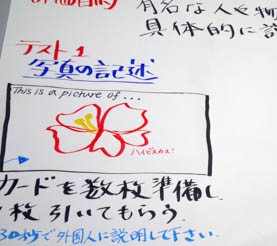 有名な人や物
具体的に説
テスト1
写真の記述
This is a picture of...
ハイビスカス!
カードを数枚準備し
1枚引いてもらう.
30秒で外国人に説明して下さい.